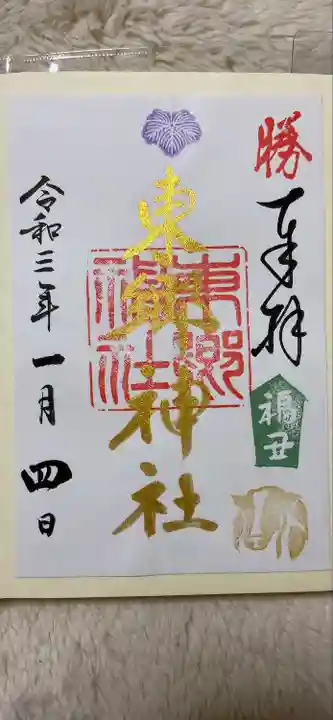 勝
奉拝
福丑
東郷神社
東郷神社
令和三年一月四日